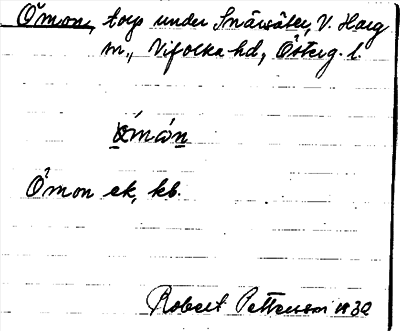 Ömon, torp under Snårsäter, V. Harg
m., Vifolka hd, Österg. l.
ömån
Ömon ek, kb.
Robert Pettersson 1930